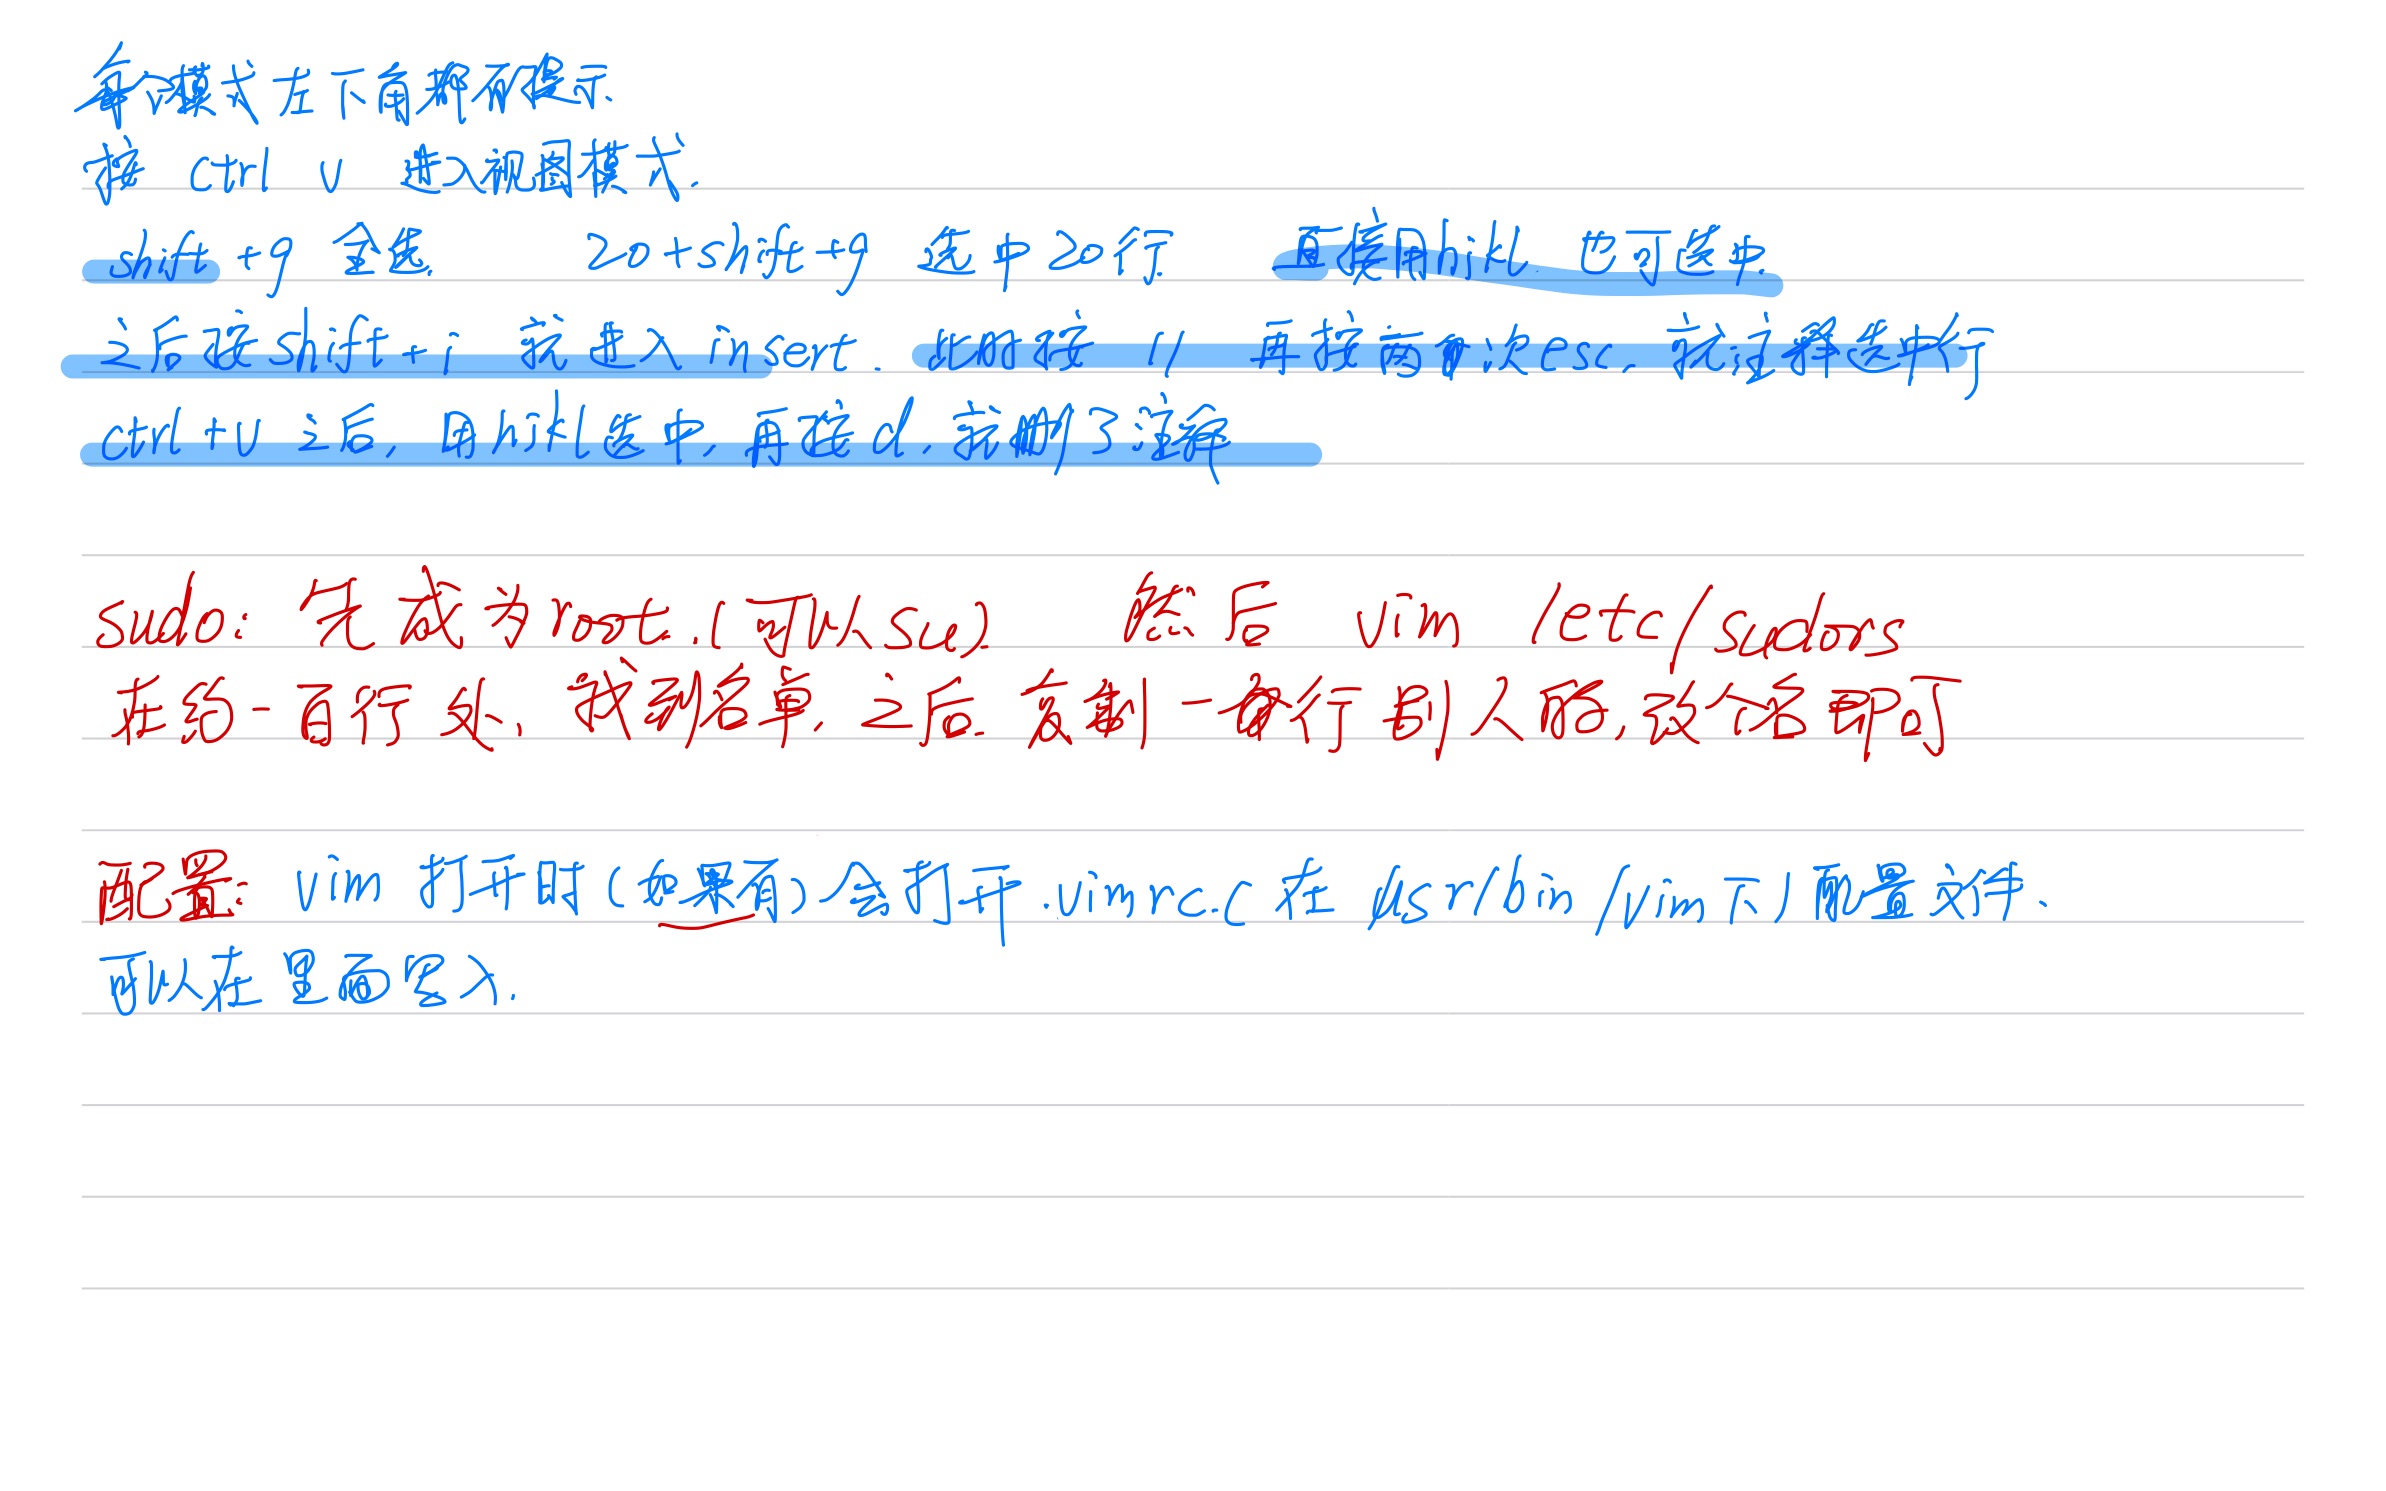 每个模式左下角都有提示.
按 ctrl v 进入视图模式.
shift+g 全选. 20+shift+g 选中20行 直接用hjkl. 也可选中.
之后按shift+i 就进入insert. 此时按 // 再按两次esc. 就注释选中行
ctrl+v之后, 用hjkl选中, 再按d, 就删了注释
sudo: 先成为root.(可以su) 然后 vim /etc/sudors
在约一百行处, 找到名单, 之后 复制一行别人的, 改个名即可
配置: vim 打开时(如果有)会打开.vimrc.(在/usr/bin/vim下)配置文件.
可以在里面置入.